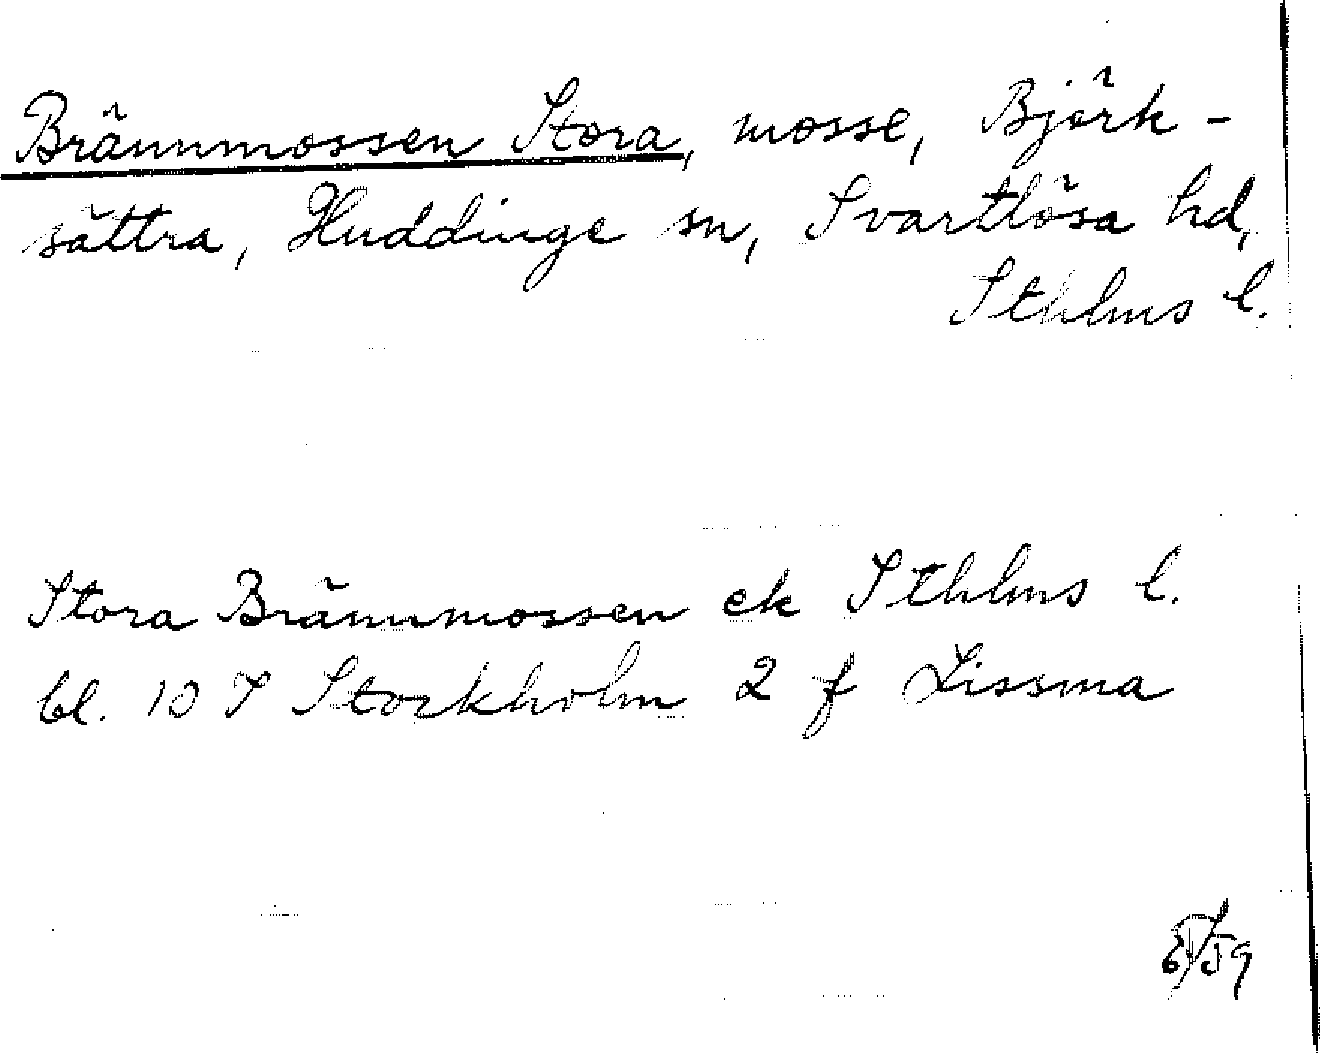 Brännmossen Stora, mosse, Björk-
sättra, Huddinge sn, Svartlösa hd,
Sthlms l.
Stora Brännmossen ek Sthlms l.
bl. 10 I Stockholm 2 f Lissma